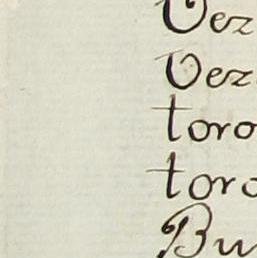 Vez
Vez
toro
toro
Bu